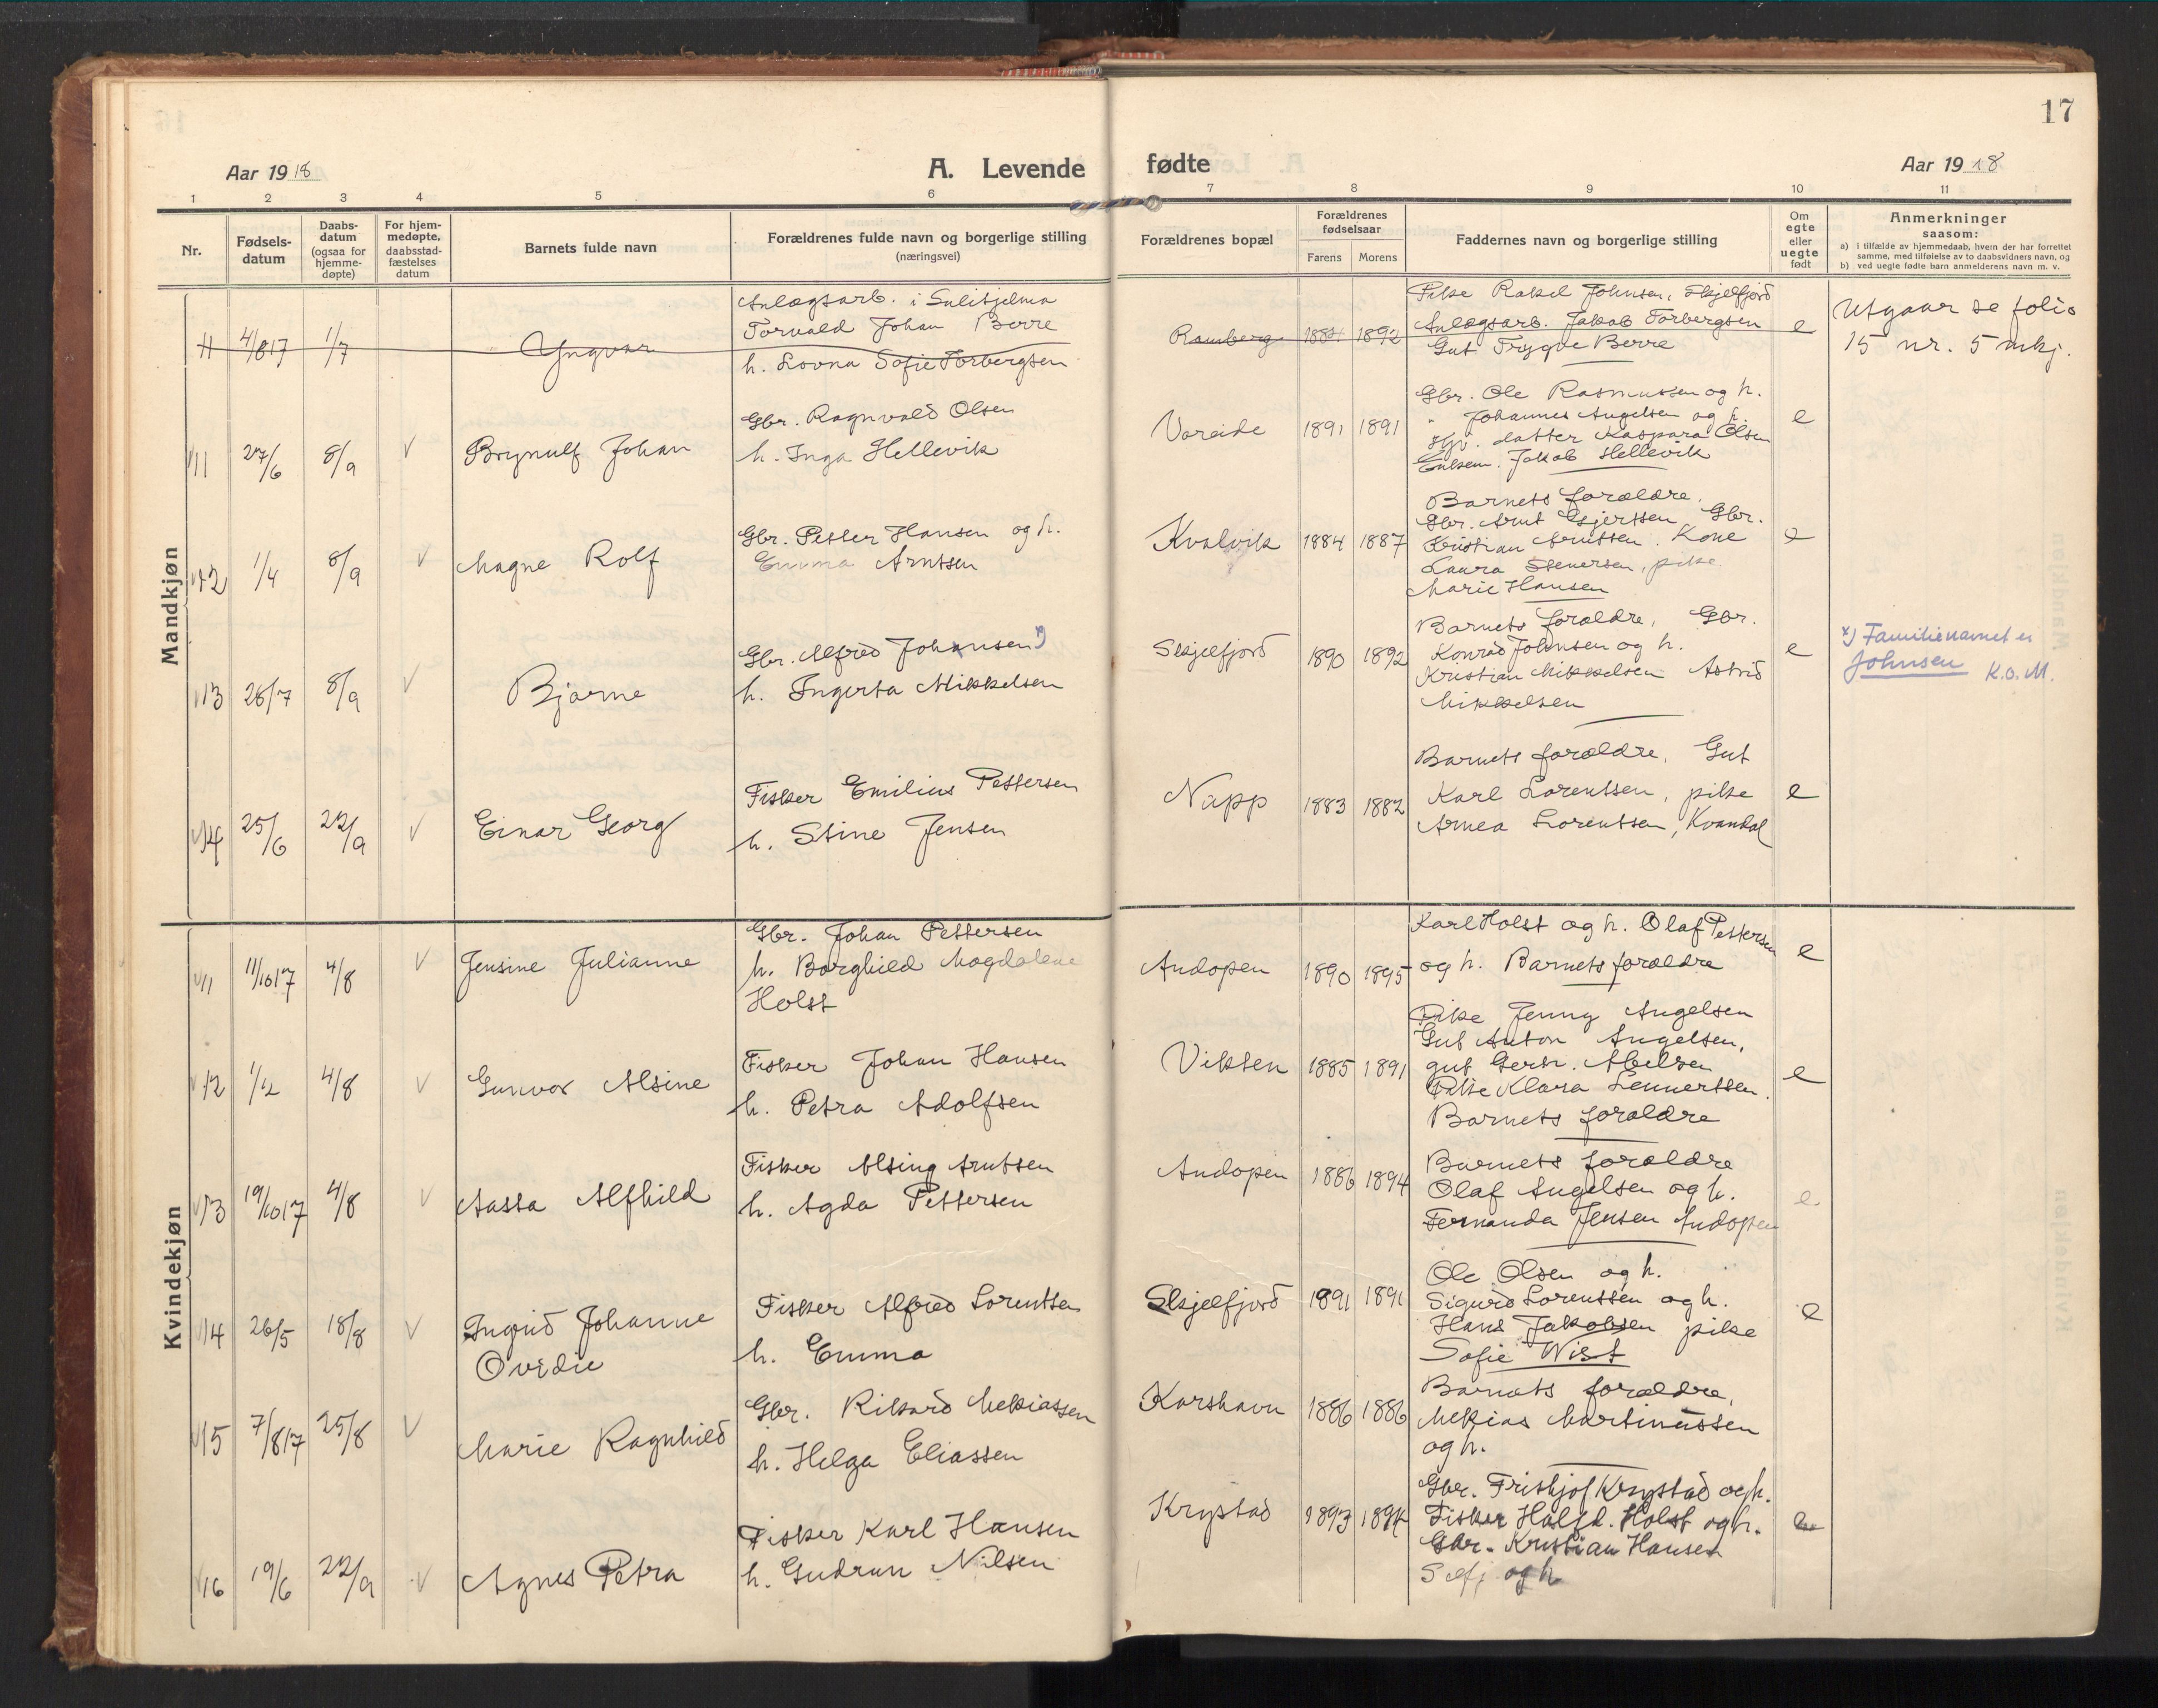 17
Aar 1918
A. Levende fødte
Aar 1918
1 2 3 4 5 6 7 8 9 10 11
Nr.
Fødsels-
datum
Daabs-
datum
(ogsaa for
hjemme-
døpte)
For hjem-
medøpte,
daabsstad-
fæstelses
datum
Barnets fulde navn
Forældrenes fulde navn og borgerlige stilling
(næringsvei)
Forældrenes bopæl
Forældrenes
fødselsaar
Farens Morens
Faddernes navn og borgerlige stilling
Om
egte
eller
uegte
født
Anmerkninger
saasom:
a) i tilfælde av hjemmedaab, hvem der har forrettet
samme, med tilføielse av to daabsvidners navn, og
b) ved uegte fødte barn anmelderens navn m. v.
Mandkjøn
11 4/8 17 1/7 Yngvar
Anlægsarb. i Sulitjelma
Torvald Johan Berre
h. Lovna Sofie Torbergsen
Ramberg 1884 1892
Pike Rakel Johnsen, Skjelfjord
Anlægsarb. Jakob Torbergsen
Gut Trygve Berre
e
Utgaar se folio
15 nr. 5 mkj.
11 27/6 8/9 Brynulf Johan
Gbr. Ragnvald Olsen
h. Inga Hellevik
Vareide 1891 1891
Gbr. Ole Rasmussen og h.
" Johannes Angelsen og h.
Gbr. datter Kaspara Olsen
Jakob Hellevik
e
12 1/4 8/9 Magne Rolf
Gbr. Petter Hansen og h.
Emma Arntsen
Kvalvik 1884 1887
Barnets forældre,
Gbr. Arnt Gjertsen, Gbr.
Kristian Arntsen. Kone
Laura Stenersen, pike
Marie Hansen
e
13 26/7 8/9 Bjarne
Gbr. Alfred Johansen x)
h. Ingerta Mikkelsen
Skjelfjord 1890 1892
Barnets forældre, Gbr.
Konrad Johnsen og h.
Kristian Mikkelsen Astrid
Mikkelsen
e
x) Familienavnet er
Johnsen K.O.M.
14 25/6 22/9 Einar Georg
Fisker Emilius Pettersen
h. Stine Jensen
Napp 1883 1882
Barnets forældre, Gut
Karl Lorentsen, pike
Arnea Lorentsen, Kvandal
e
Kvindekjøn
11 11/10 17 4/8 Jensine Julianne
Gbr. Johan Pettersen
h. Borghild Magdalene
Holst
Andopen 1890 1895
Karl Holst og h. Olaf Pettersen
og h. Barnets forældre
e
12 1/2 4/8 Gunvor Alsine
Fisker Johan Hansen
h. Petra Adolfsen
Vikten 1885 1891
Pike Jenny Angelsen
Gut Anton Angelsen,
gut Gerh. Abelsen
Pike Klara Lennertsen.
Barnets forældre
e
13 19/10 17 4/8 Aassa Alfhild
Fisker Alsing Arntsen
h. Agda Pettersen
Andopen 1886 1894
Barnets forældre
Olaf Angelsen og h.
Fernanda Jensen Andopen
e.
14 26/5 18/8 Ingrid Johanne
Ovedie
Fisker Alfred Lorentsen
h. Emma
Skjelfjord 1891 1891
Ole Olsen og h.
Sigurd Lorentsen og h.
Hans Jakobsen pike
Sofie Wist
e
15 7/8 17 25/8 Marie Ragnhild
Gbr. Rikard Mekiassen
h. Helga Eliassen
Karshavn 1886 1886
Barnets forældre,
Mekias Martinussen
og h.
16 19/6 22/9 Agnes Petra
Fisker Karl Hansen
h. Gudrun Nilsen
Krystad 1893 1894
Gbr. Frithjof Krystad og h.
Fisker Halfd. Holst og h.
Gbr. Kristian Hansen
Selfj og h
e